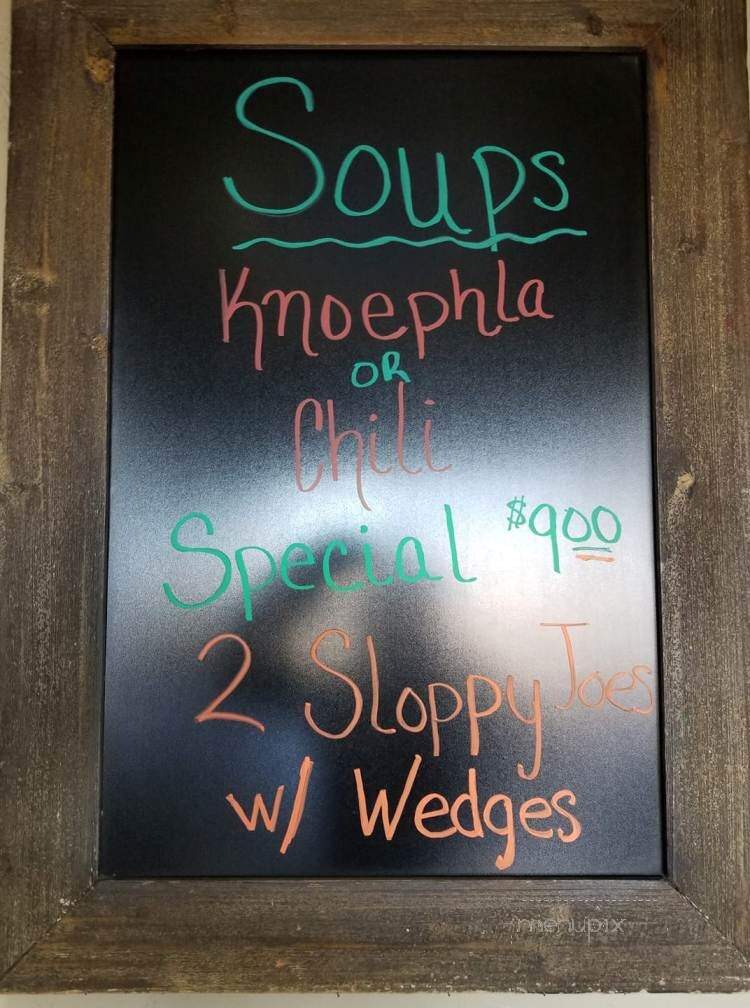 Soups
Knoephla
OR
Chili
Special $900
2 Sloppy Joes
w/ Wedges
menupix